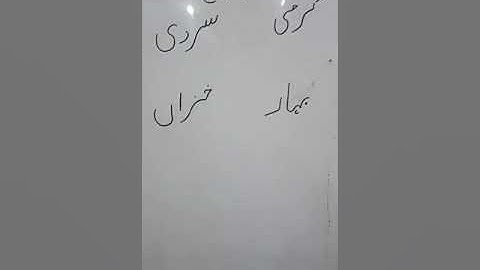 گرمی سردی
بہار خزاں